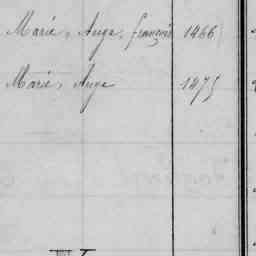 Marie, Ange, françois 1466
Marie, Ange 1475